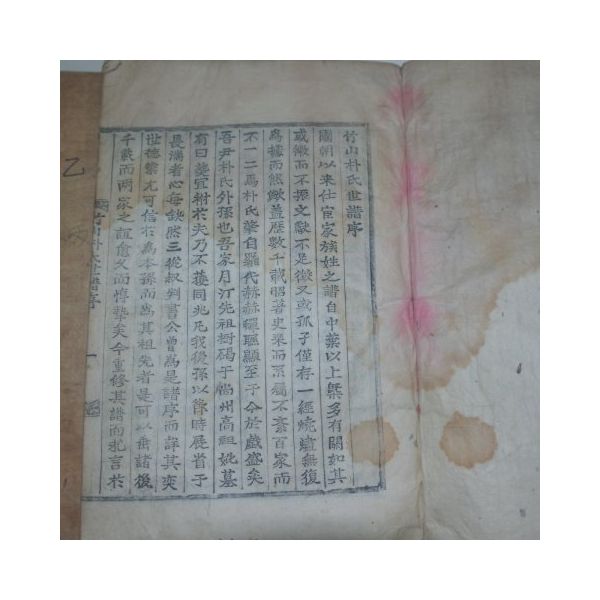 竹山朴氏世譜序
國朝以來仕宦家族姓之譜自中葉以上槩多有闕如其
或徵而不振文獻不足徵又或孤子僅存一經燒爐無復
爲據而能歷數千載昭著史乘而不紊百家而
不一二焉朴氏肇自羅代赫赫顯至于今於戲盛矣
吾尹朴氏外孫也吾家月汀先祖樹碣于楊州高祖妣墓
有曰奠宜祔於夫乃不獲同兆凡我後孫以時展省于
長湍者心每缺然三從叔判書公曾爲是譜序而詳其奕
世德業尤可信於爲本孫而爲其祖先者是可以垂諸後
千載而兩家之誼愈久而惇摯矣今重修其譜而求言於
竹山朴氏世譜序
一
乙